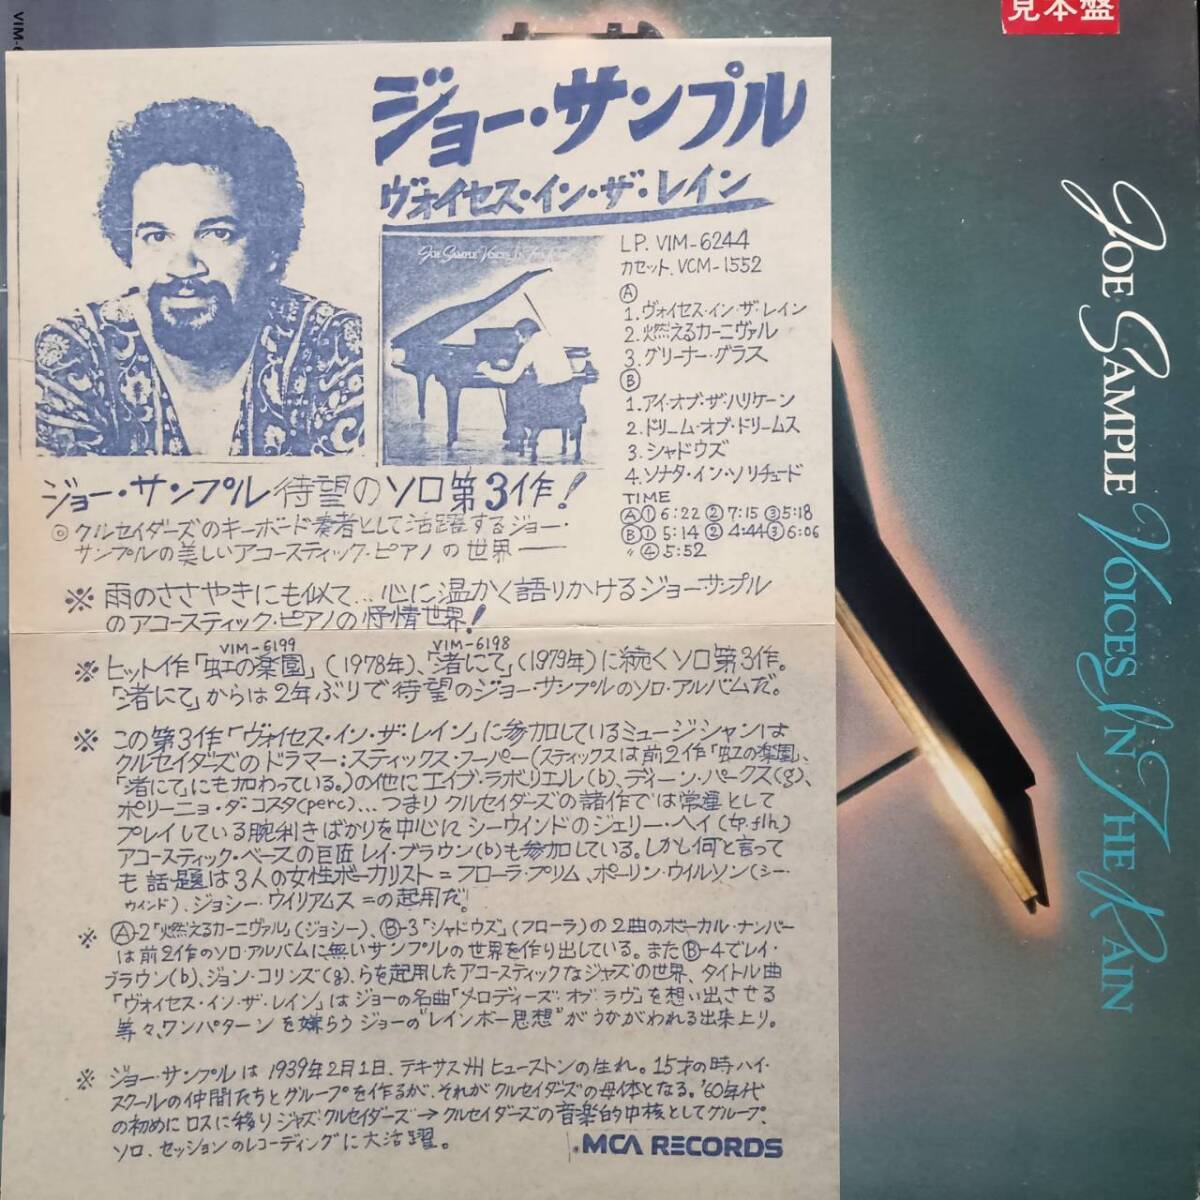 見本盤
ジョー・サンプル
ヴォイセス・イン・ザ・レイン
JOE SAMPLE VOICES IN THE RAIN
LP. VIM-6244
カセット. VCM-1552
Ⓐ
1. ヴォイセス・イン・ザ・レイン
2. 燃えるカーニヴァル
3. グリーナー・グラス
Ⓑ
1. アイ・オブ・ザ・ハリケーン
2. ドリーム・オブ・ドリームス
3. シャドウズ
4. ソナタ・イン・ソリチュード
TIME
Ⓐ① 6:22 ② 7:15 ③ 5:18
Ⓑ① 5:14 ② 4:44 ③ 6:06
〃 ④ 5:52
ジョー・サンプル 待望のソロ第3作!
◎ クルセイダーズのキーボード奏者として活躍するジョー・
サンプルの美しいアコースティック・ピアノの世界——
※ 雨のささやきにも似て…心に温かく語りかけるジョー・サンプル
のアコースティック・ピアノの抒情世界!
VIM-6199 VIM-6198
※ ヒット作「虹の楽園」(1978年)、「渚にて」(1979年)に続くソロ第3作。
「渚にて」からは2年ぶりで待望のジョー・サンプルのソロ・アルバムだ。
※ この第3作「ヴォイセス・イン・ザ・レイン」に参加しているミュージシャンは
クルセイダーズのドラマー:スティックス・フーパー(スティックスは前2作「虹の楽園」、
「渚にて」にも加わっている。)の他にエイブ・ラボリエル(b)、ディーン・パークス(g)、
ポリーニョ・ダ・コスタ(perc)…つまりクルセイダーズの諸作では常連として
プレイしている腕利きばかりを中心にシーウインドのジェリー・ヘイ(tp.flh)
アコースティック・ベースの巨匠レイ・ブラウン(b)も参加している。しかし何と言って
も話題は3人の女性ボーカリスト=フローラ・プリム、ポーリン・ウイルソン(シー・
ウィンド)、ジョシー・ワイリアムス=の起用だ!
※ Ⓐ-2「燃えるカーニヴァル」(ジョシー)、Ⓑ-3「シャドウズ」(フローラ)の2曲のボーカル・ナンバー
は前2作のソロ・アルバムに無いサンプルの世界を作り出している。またⒷ-4でレイ・
ブラウン(b)、ジョン・コリンズ(g)、らを起用したアコースティックなジャズの世界、タイトル曲
「ヴォイセス・イン・ザ・レイン」はジョーの名曲「メロディーズ・オブ・ラヴ」を想い出させる
等々、ワンパターンを嫌らうジョーの"レインボー思想"がうかがわれる出来上り。
※ ジョー・サンプルは1939年2月1日、テキサス州ヒューストンの生れ。15才の時ハイ・
スクールの仲間たちとグループを作るが、それがクルセイダーズの母体となる。'60年代
の初めにロスに移りジャズ・クルセイダーズ→クルセイダーズの音楽的中核としてグループ、
ソロ、セッションのレコーディングに大活躍。
MCA RECORDS
JOE SAMPLE VOICES IN THE RAIN